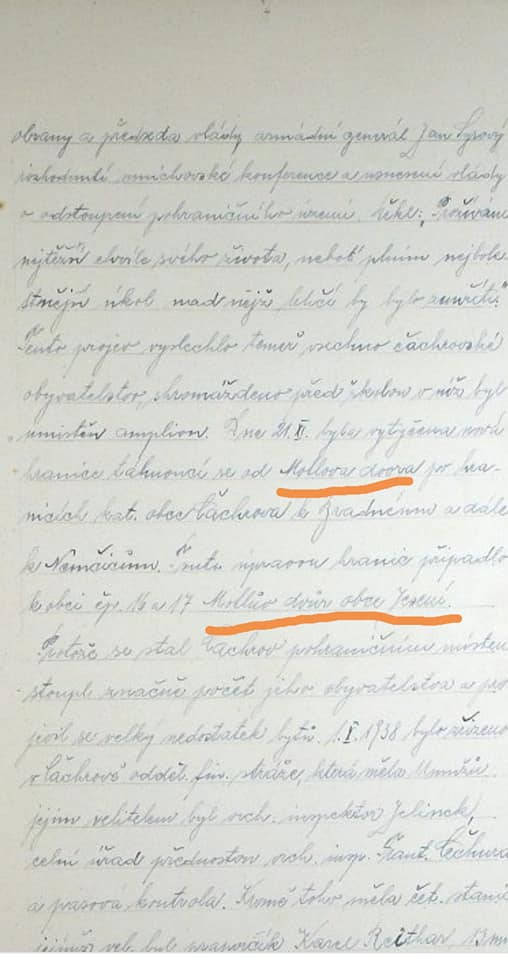 obrany a předseda vlády armádní generál Jan Syrový
rozhodnutí mnichovské konference a usnesení vlády
o odstoupení pohraničního území, řekl: „Prožívám
nejtěžší chvíle svého života, neboť plním nejbole-
stnější úkol nad nějž lehčí by bylo zemříti."
Tento projev vyslechlo téměř všechno čachrovské
obyvatelstvo, shromážděno před školou v níž byl
umístěn amplion. Dne 21.XI. byla vytyčena nová
hranice táhnoucí se od Mollova dvora po hra-
nicích kat. obce Čachrova k Zvadnému a dále
k Němčicům. Touto úpravou hranic připadlo
k obci čp. 16 a 17 Mollův dvůr obce Javorné.
Protože se stal Čachrov pohraničním místem
stoupl značně počet jeho obyvatelstva a pro
jevil se velký nedostatek bytů. 1.X.1938 bylo zřízeno
v Čachrově odděl. fin. stráže, která měla mužů.
jejím velitelem byl vrch. inspektor Jelínek,
celní úřad přednostou vrch. insp. Frant. Čechura
a pasová kontrola. Kromě toho měla čet. stanice
jejímž vel. byl praporčík Karel Reithar, 13 mu